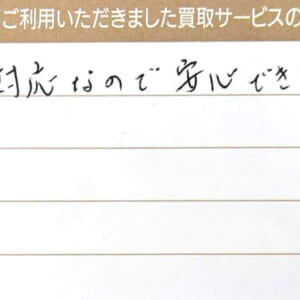 ご利用いただきました買取サービスの
対応なので安心でき